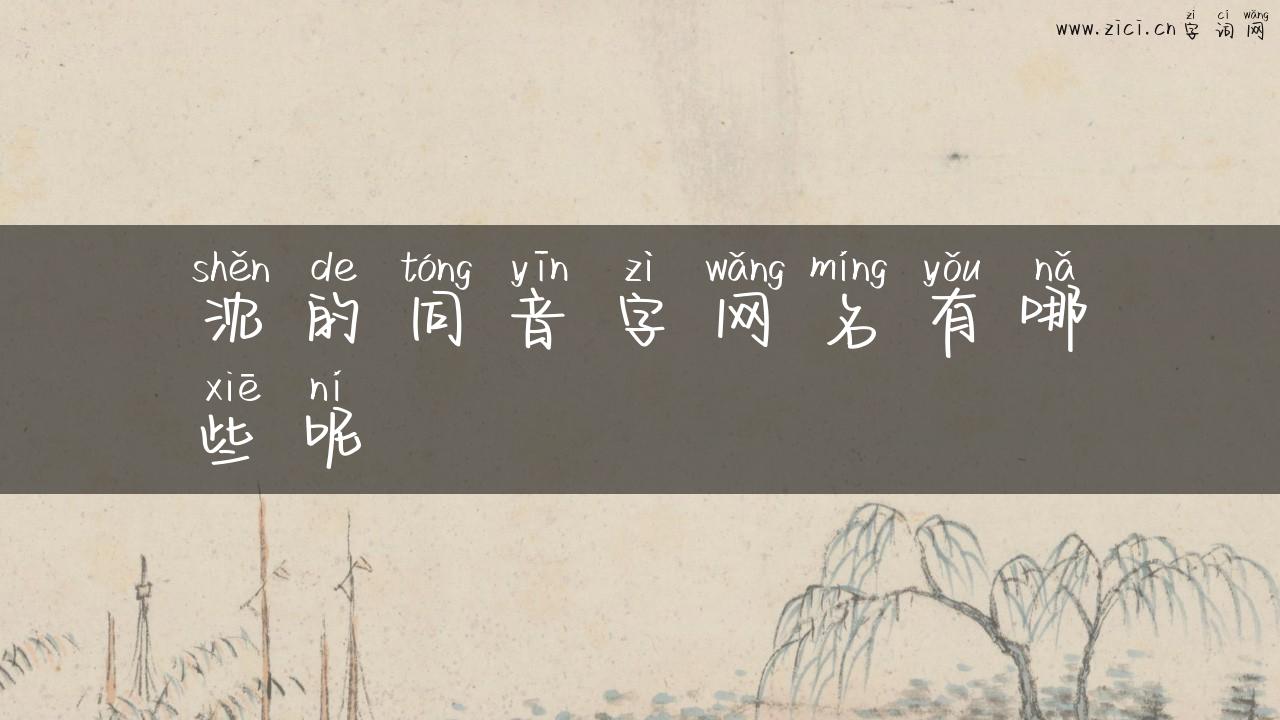 zì cí wǎng
www.zici.cn 字 词 网
shěn de tóng yīn zì wǎng míng yǒu nǎ
沈 的 同 音 字 网 名 有 哪
xiē ní
些 呢